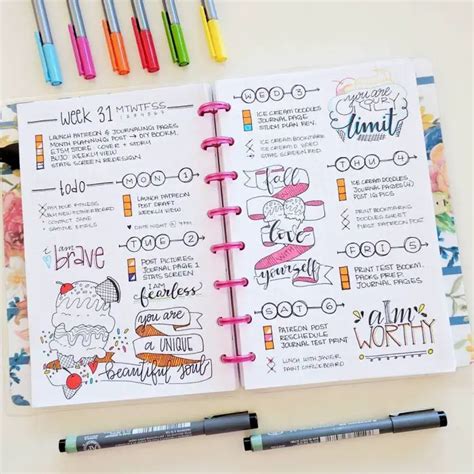 WEEK 31 MTWTFSS
LAUNCH PATREON & JOURNALING PAGES
MONTH PLANNING POST → DIY BOOKM.
ETSY STORE COVER + STORM
BUJO WEEKLY VIEW
STATS SCREEN REDESIGN
todo
MON 1
LAUNCH PATREON
POST DRAFT
WEEKLY VIEW
DATE NIGHT @ 9PM
I am
BRAVE
TUE 2
POST PICTURES
JOURNAL PAGE 1
STATS SCREEN
I AM
fearless
you are
A UNIQUE
beautiful soul
WED 3
ICE CREAM DOODLES
JOURNAL PAGE
STORM PLAN REV.
ICE CREAM BOOKMARK
you are
YOUR
limit
THU 4
ICE CREAM DOODLES
JOURNAL PAGES (4)
POST IG PICS
PRINT BOOKMARKS
DOODLES GUEST
FIRST PATREON POST
fall
in
love
with
yourself
FRI 5
PRINT TEST BOOKM.
PACKS PREP.
JOURNAL PAGES
SAT 6
PATREON POST
RESCHEDULE
JOURNAL TEST PRINT
LUNCH WITH JAVIER
PAINT CHALKBOARD
I am
WORTHY